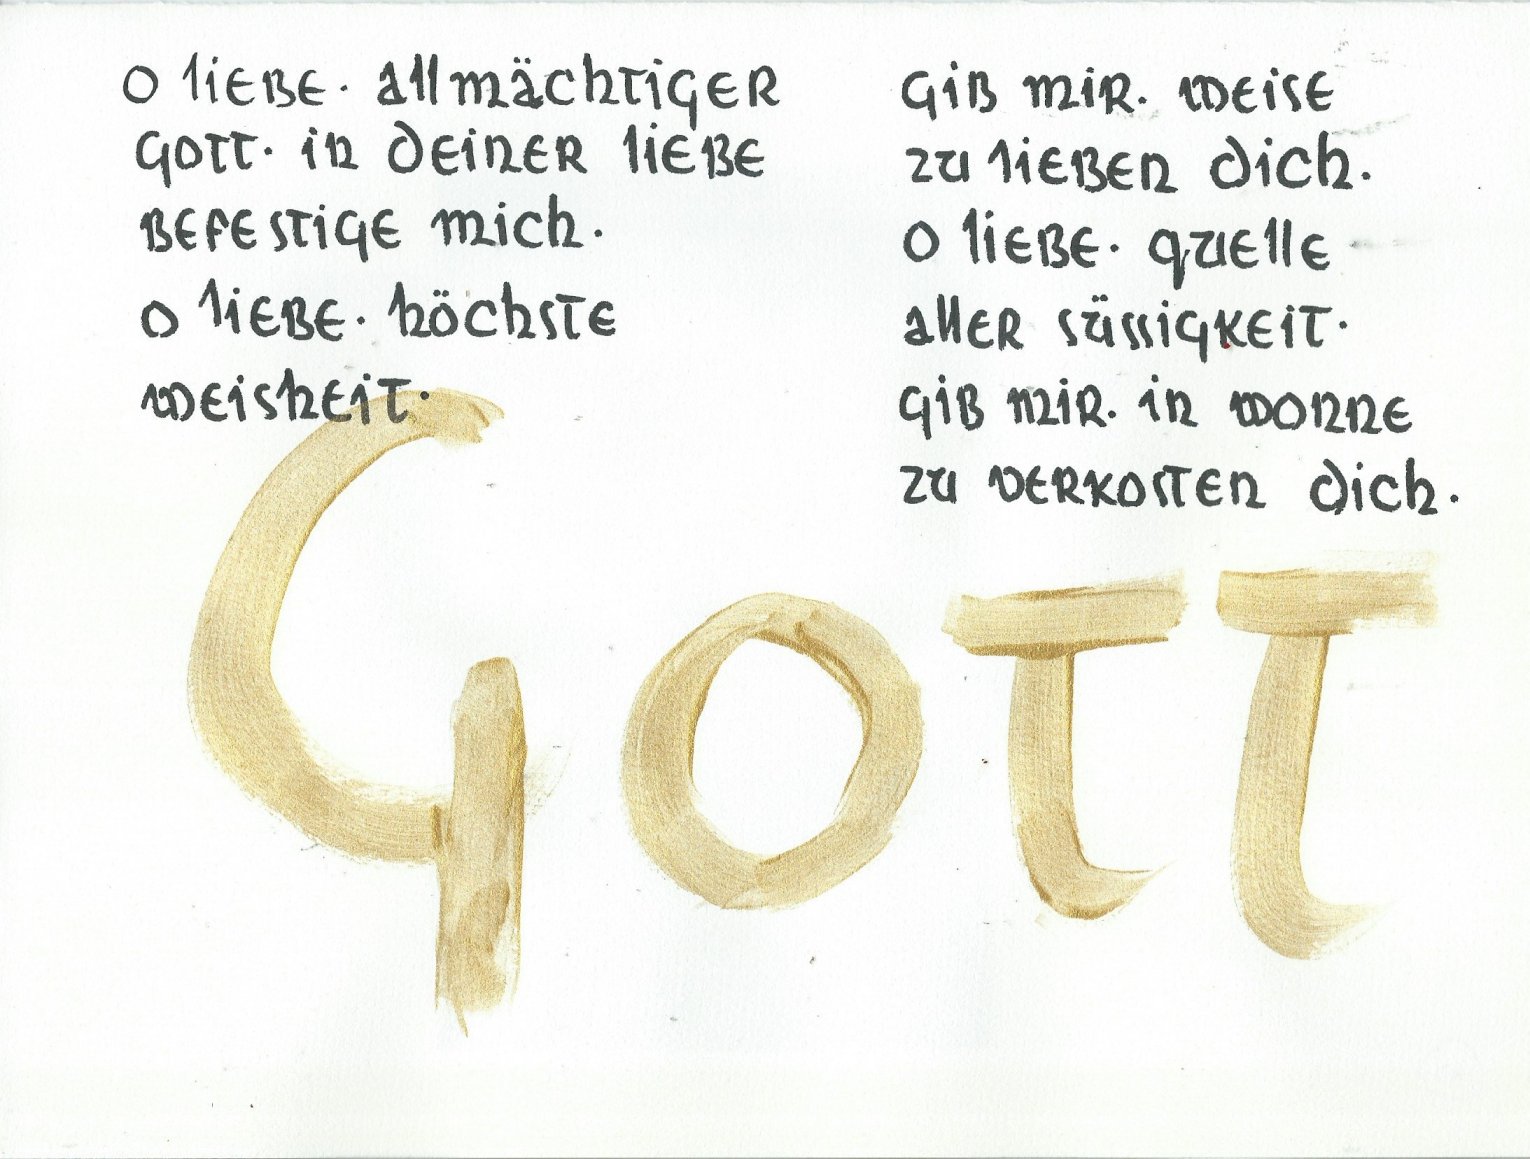 O liebe. allmächtiger
Gott. in deiner liebe
befestige mich.
O liebe. höchste
weisheit.
Gib mir. weise
zu lieben dich.
O liebe. quelle
aller süssigkeit.
Gib mir. in wonne
zu verkosten dich.
Gott